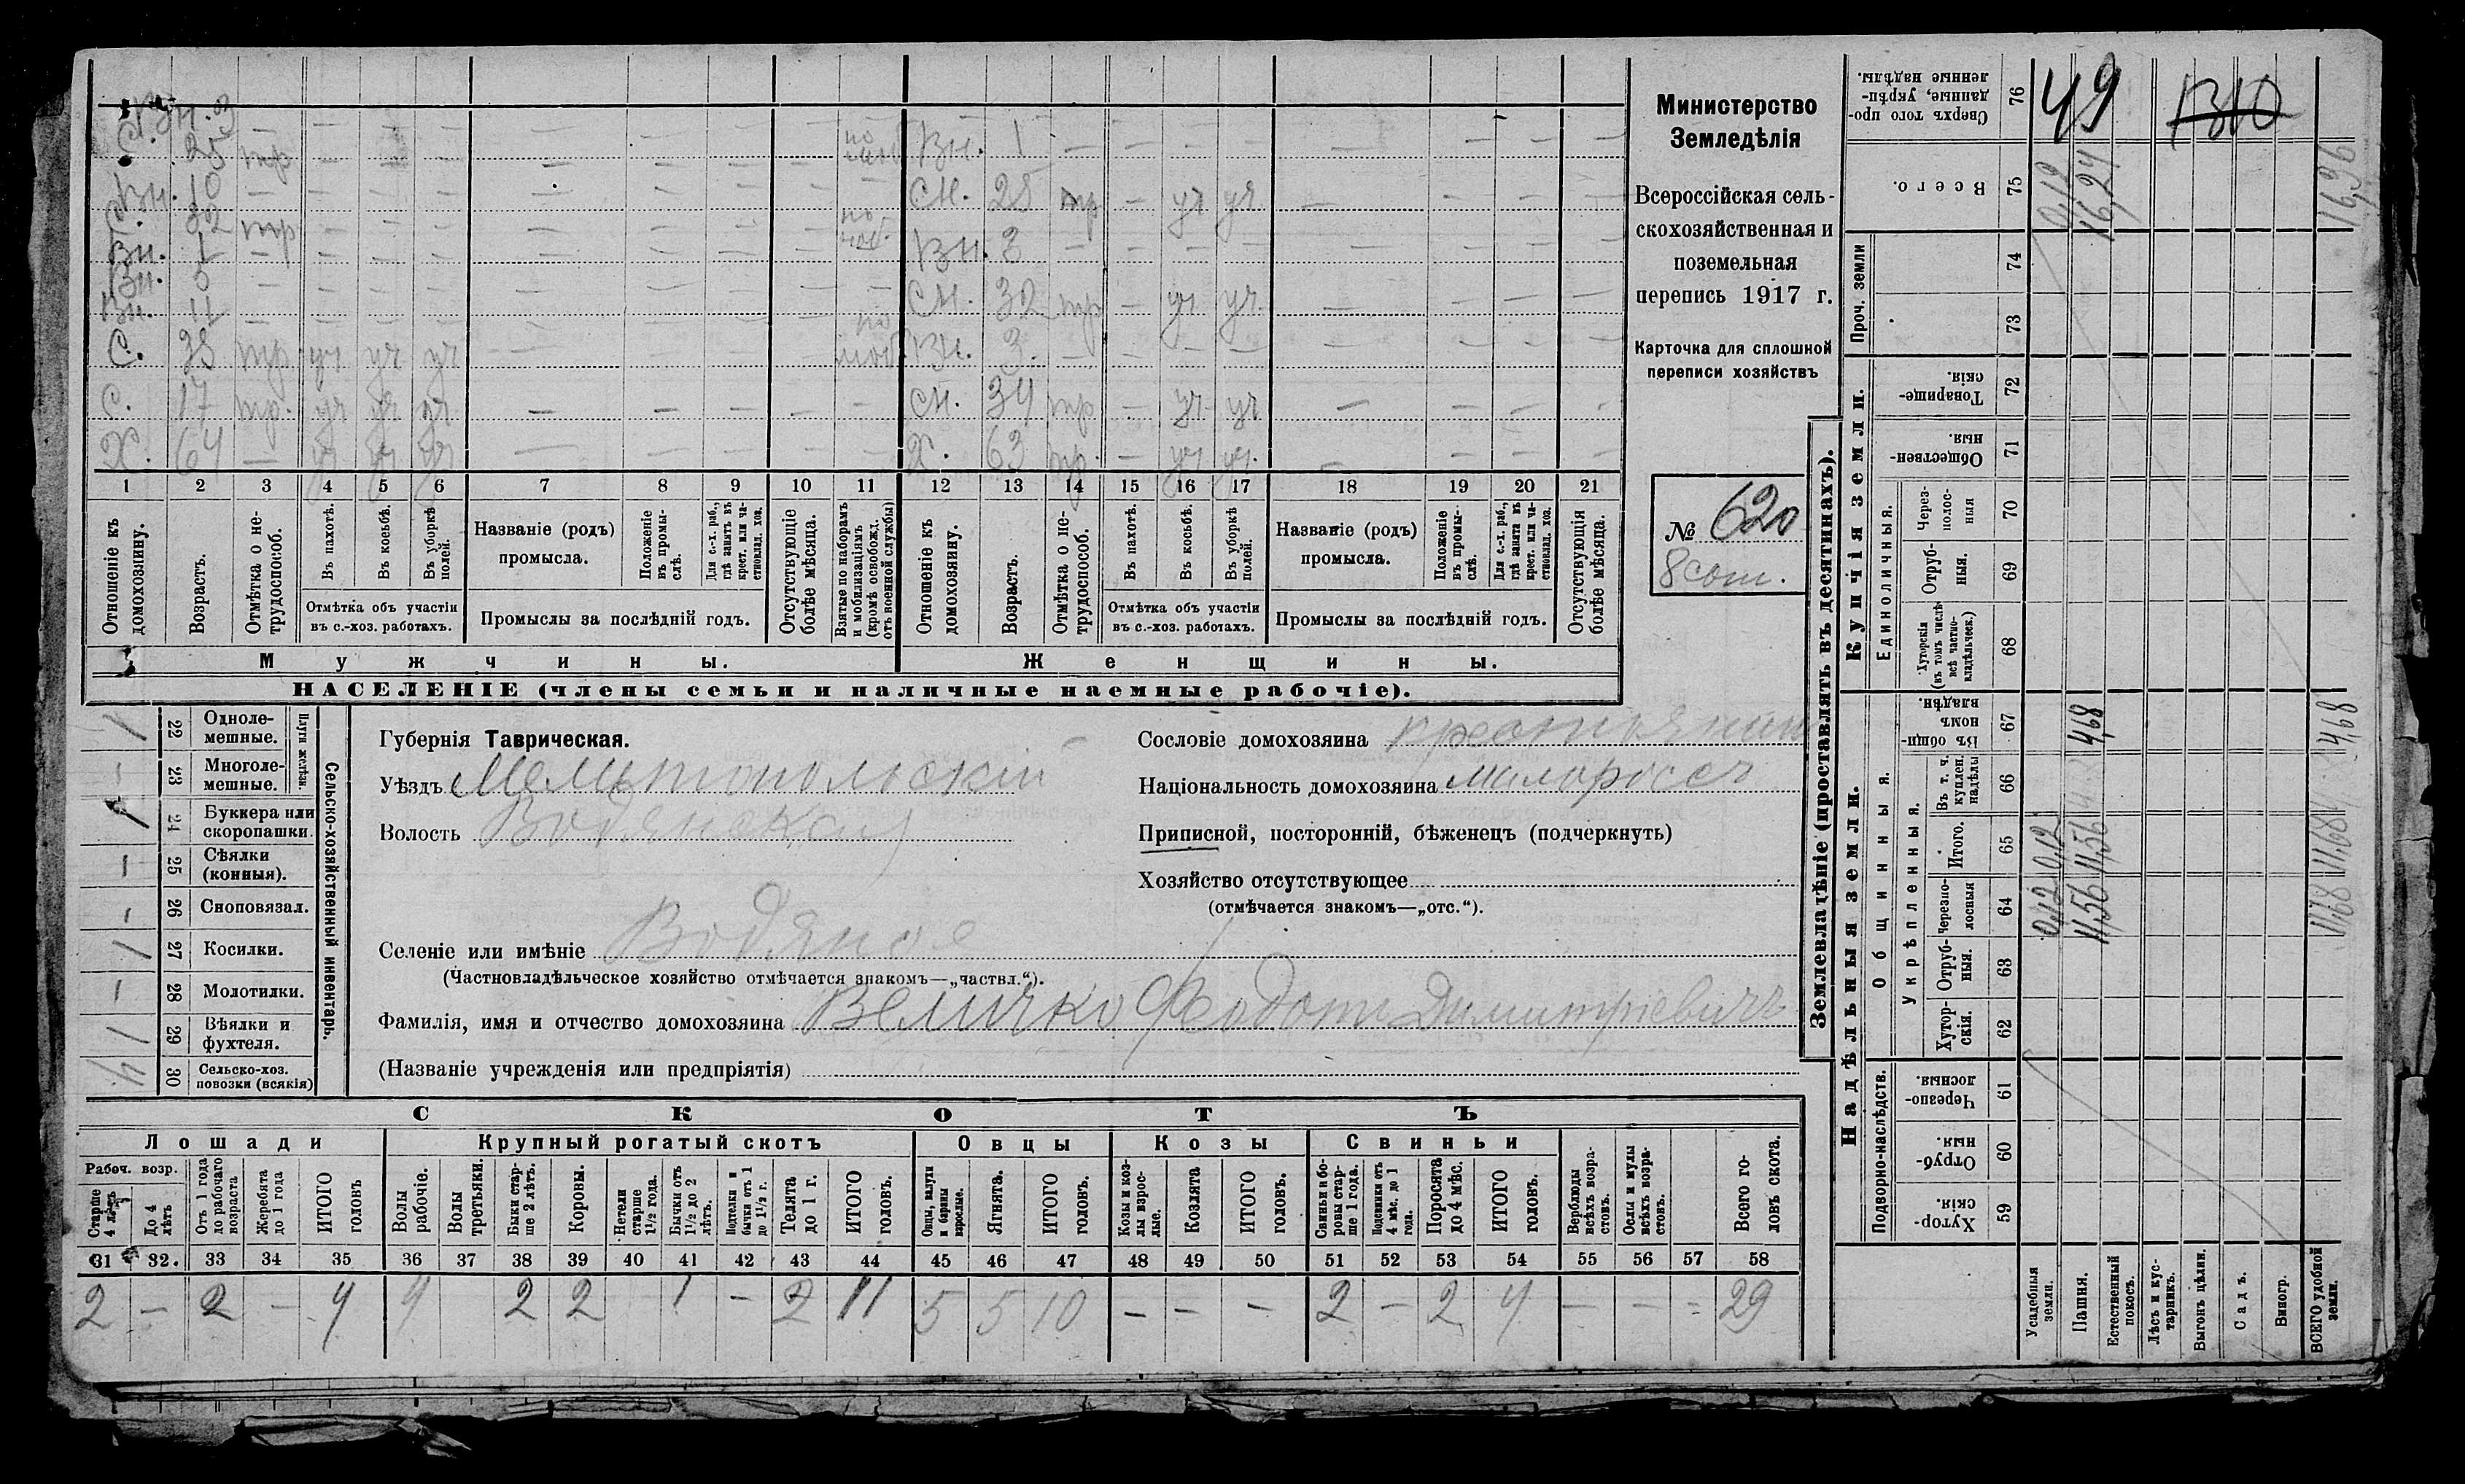 Вн. 3 — — — — — — — —
С. 25 тр — — — — — — — по моб. Вн. 1 — — — — — — — —
Вн. 10 — — — — — — — — — Сн. 25 тр — уч уч — — — —
С. 32 тр — — — — — — — по моб. Вн. 3 — — — — — — — —
Вн. 1 — — — — — — — — —
Вн. 5 — — — — — — — — — Сн. 32 тр — уч уч. — — — —
Вн. 11 — — — — — — — — —
С. 38 тр. уч уч уч — — — — по моб. Вн. 3. — — — — — — — —
С. 17 тр. уч уч уч — — — — — Сн. 34 тр — уч уч — — — —
Х. 64 — уч уч уч — — — — — Х. 63 тр. — уч уч. — — — —
1 2 3 4 5 6 7 8 9 10 11 12 13 14 15 16 17 18 19 20 21
Отношеніе къ домохозяину.
Возрастъ.
Отмѣтка о не-трудоспособ.
Въ пахотѣ.
Въ косьбѣ.
Въ уборкѣ полей.
Отмѣтка объ участіи въ с.-хоз. работахъ.
Названіе (родъ) промысла.
Положеніе въ промы-слѣ.
Для с.-х. раб., гдѣ занятъ въ крест. или ча-стновлад. хоз.
Промыслы за послѣдній годъ.
Отсутствующіе болѣе мѣсяца.
Взятые по наборамъ и мобилизаціямъ (кромѣ освобожд. отъ военной службы)
Отношеніе къ домохозяину.
Возрастъ.
Отмѣтка о не-трудоспособ.
Въ пахотѣ.
Въ косьбѣ.
Въ уборкѣ полей.
Отмѣтка объ участіи въ с.-хоз. работахъ.
Названіе (родъ) промысла.
Положеніе въ промы-слѣ.
Для с.-х. раб., гдѣ занята въ крест. или ча-стновлад. хоз.
Промыслы за послѣдній годъ.
Отсутствующія болѣе мѣсяца.
Мужчины.
Женщины.
НАСЕЛЕНІЕ (члены семьи и наличные наемные рабочіе).
Министерство
Земледѣлія
Всероссійская сель-
скохозяйственная и
поземельная
перепись 1917 г.
Карточка для сплошной
переписи хозяйствъ
№ 620
8 сот.
Сельско-хозяйственный инвентарь.
Плуги желѣзн.
/ 22 Одноле-мешные.
— 23 Многоле-мешные.
/ 24 Буккера или скоропашки.
— 25 Сѣялки (конныя).
— 26 Сноповязал.
/ 27 Косилки.
— 28 Молотилки.
/ 29 Вѣялки и фухтеля.
30 Сельско-хоз. повозки (всякія)
Губернія Таврическая.
Уѣздъ Мелитопольскій
Волость Водянская
Селеніе или имѣніе Водяное
(Частновладѣльческое хозяйство отмѣчается знакомъ—„частвл.“).
Фамилія, имя и отчество домохозяина Величко Феодотъ Димитріевичъ
(Названіе учрежденія или предпріятія)
Сословіе домохозяина крестьянин
Національность домохозяина малороссъ
Приписной, посторонній, бѣженецъ (подчеркнуть)
Хозяйство отсутствующее
(отмѣчается знакомъ—„отс.“).
СКОТЪ
Лошади
Крупный рогатый скотъ
Овцы
Козы
Свиньи
Рабоч. возр.
Старше 4 лѣтъ
До 4 лѣтъ
Отъ 1 года до рабочаго возраста
Жеребята до 1 года
ИТОГО головъ
Волы рабочіе.
Волы третьяки.
Быки стар-ше 2 лѣтъ.
Коровы.
Нетели старше 1½ года.
Бычки отъ 1½ до 2 лѣтъ.
Подтелки и бычки отъ 1 до 1½ г.
Телята до 1 г.
ИТОГО головъ.
Овцы, валухи и бараны взрослые.
Ягнята.
ИТОГО головъ.
Козы и коз-лы взрос-лые.
Козлята
ИТОГО головъ.
Свиньи и бо-ровы стар-ше 1 года.
Подсвинки отъ 4 мѣс. до 1 года.
Поросята до 4 мѣс.
ИТОГО головъ.
Верблюды всѣхъ возра-стовъ.
Ослы и мулы всѣхъ возра-стовъ.
Всего го-ловъ скота.
31 32 33 34 35 36 37 38 39 40 41 42 43 44 45 46 47 48 49 50 51 52 53 54 55 56 57 58
2 — 2 — 4 4 2 2 1 — 2 11 5 5 10 — — — 2 — 2 4 — — — 29
Землевладѣніе (проставлять въ десятинахъ).
Надѣльныя земли.
Купчія земли.
Проч. земли
Подворно-наслѣдств.
Общинныя.
Укрѣпленныя.
Единоличныя.
Хутор-скія. 59
Отруб-ныя. 60
Черезпо-лосныя. 61
Хутор-скія. 62
Отруб-ныя. 63
Черезпо-лосныя 64
Итого. 65
Въ т. ч. куплен. надѣлы 66
Въ общин-номъ владѣн. 67
Хуторскія (въ томъ числѣ всѣ частно-владѣльческ.) 68
Отруб-ныя. 69
Через-полос-ныя 70
Обществен-ныя. 71
Товарище-скія. 72
73
74
Всего. 75
Сверхъ того про-данные, укрѣп-ленные надѣлы. 76
Усадебныя земли. 0,12 0,12 0,12
Пашня. 11,56 11,56 4,68 16,24
Естественный покосъ.
Лѣсъ и кус-тарникъ.
Выгонъ цѣлин.
Садъ.
Виногр.
ВСЕГО удобной земли. 11,68 11,68 4,68 16,36
49
1310